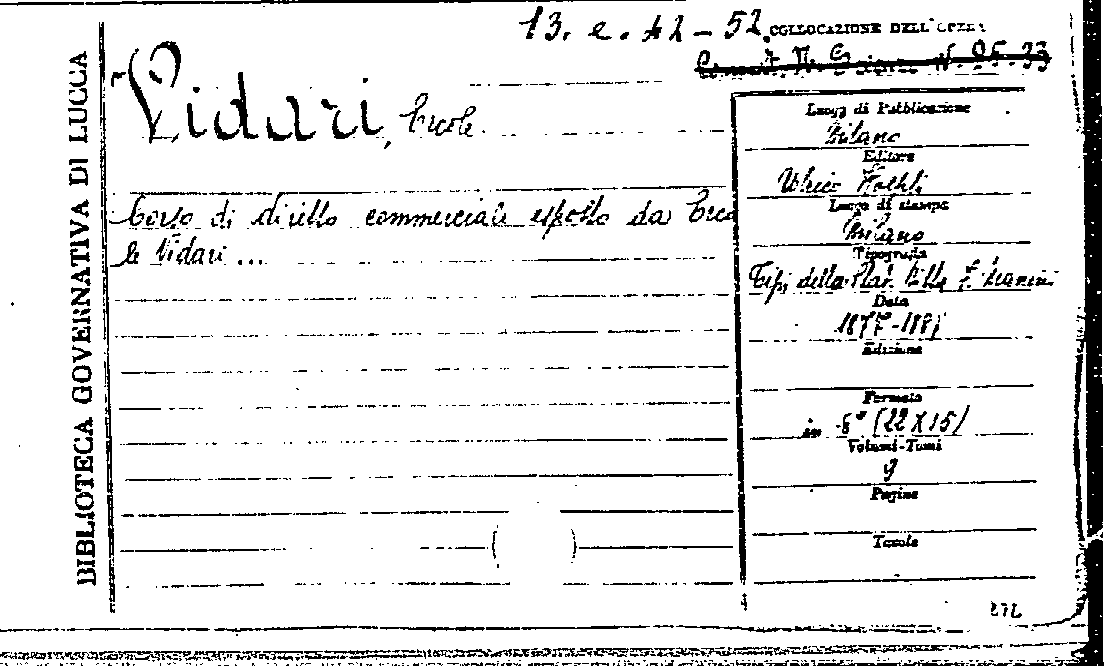 BIBLIOTECA GOVERNATIVA DI LUCCA
13. e. 42 - 52
COLLOCAZIONE DELL'OPERA
N. 95.33
Vidari, Ercole.
Corso di diritto commerciale esposto da Erco
le Vidari ...
Luogo di Pubblicazione
Milano
Editore
Ulrico Hoepli
Luogo di stampa
Milano
Tipografia
Tipi della
Data
1877-1887
Edizione
Formato
in 8° (22 X 15)
Volumi-Tomi
9
Pagine
Tavole
( )
272